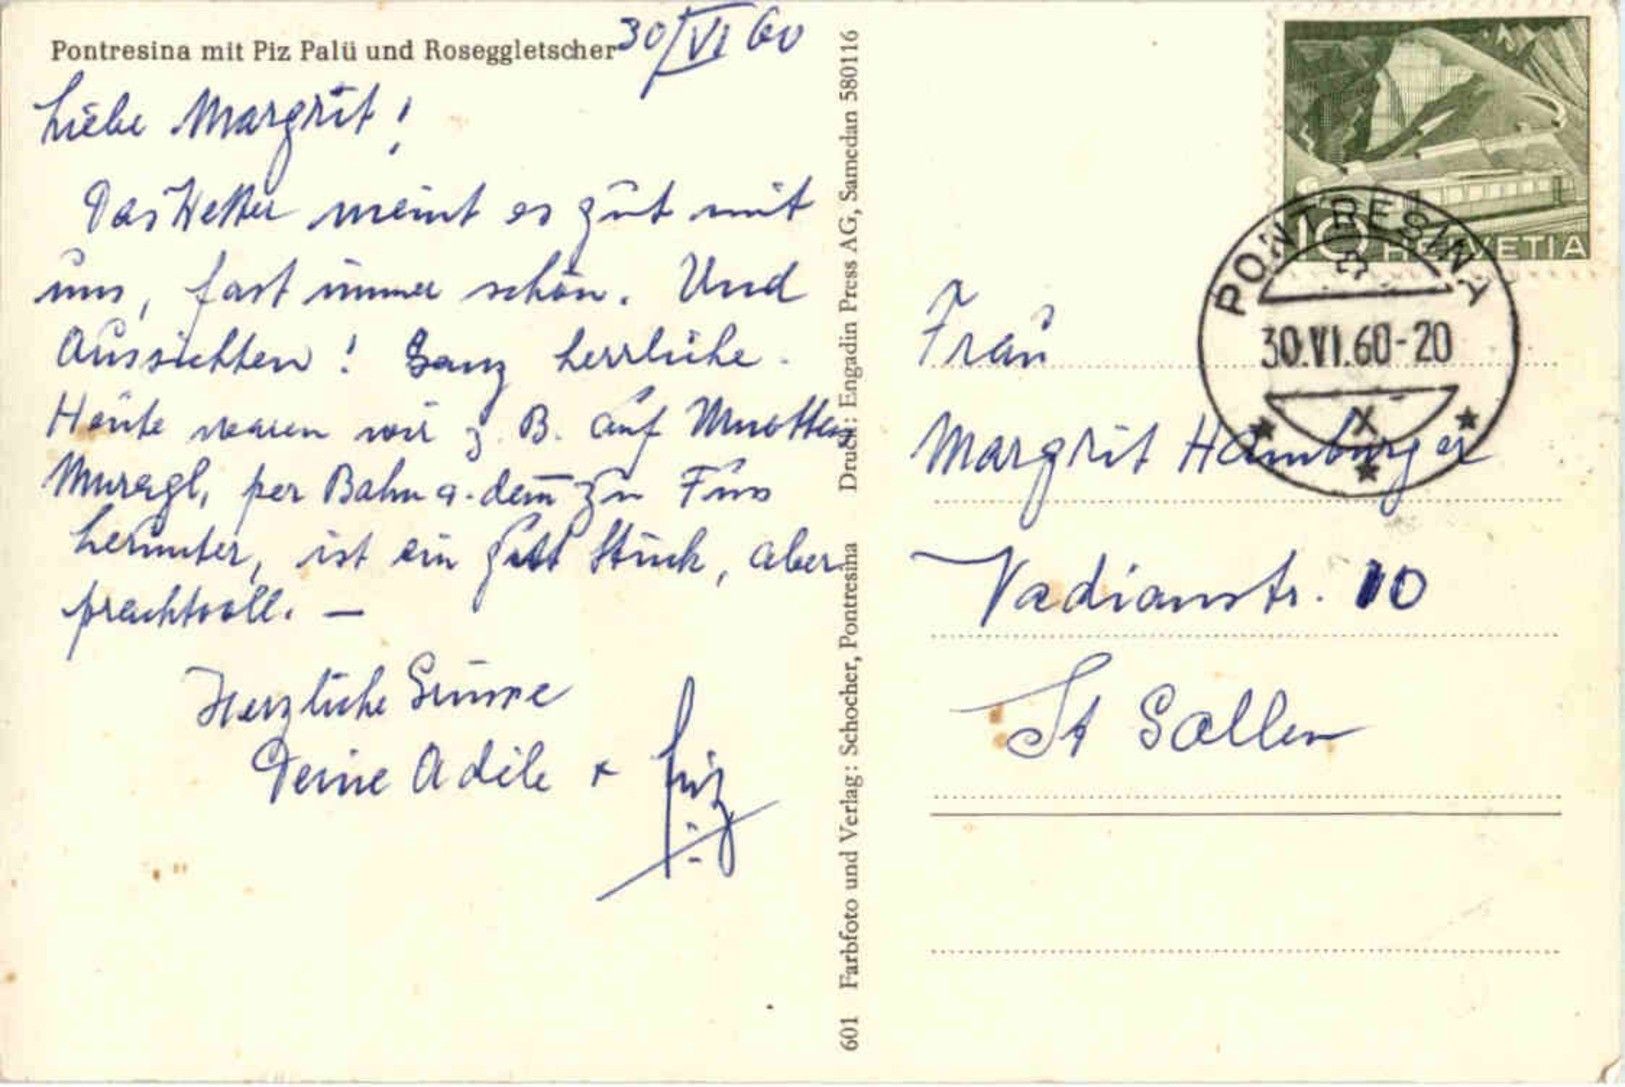 Pontresina mit Piz Palü und Roseggletscher
30/VI 60
Liebe Margrit!
Das Wetter meint es gut mit
uns, fast immer schön. Und
Aussichten! Ganz herrliche.
Heute waren wir z. B. auf Muottas
Muragl, per Bahn & dann zu Fuss
herunter, ist ein gutes Stück, aber
prachtvoll. —
Herzliche Grüsse
Deine Adile +
601 Farbfoto und Verlag: Schocher, Pontresina Druck: Engadin Press AG, Samedan 580116
10 HELVETIA
PONTRESINA
30.VI.60-20
X
Frau
Margrit Hamburger
Vadianstr. 10
St Gallen